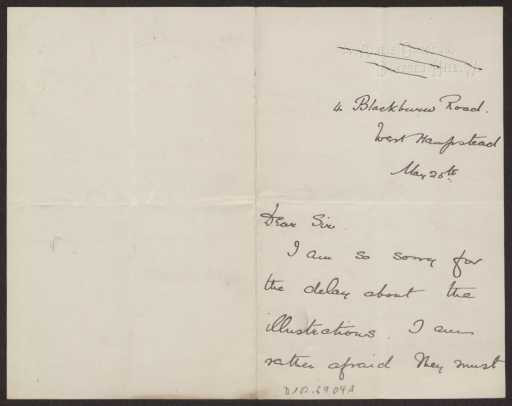 4. Blackburn Road.
West Hampstead
May 20th
Dear Sir.
I am so sorry for
the delay about the
illustrations. I am
rather afraid they must